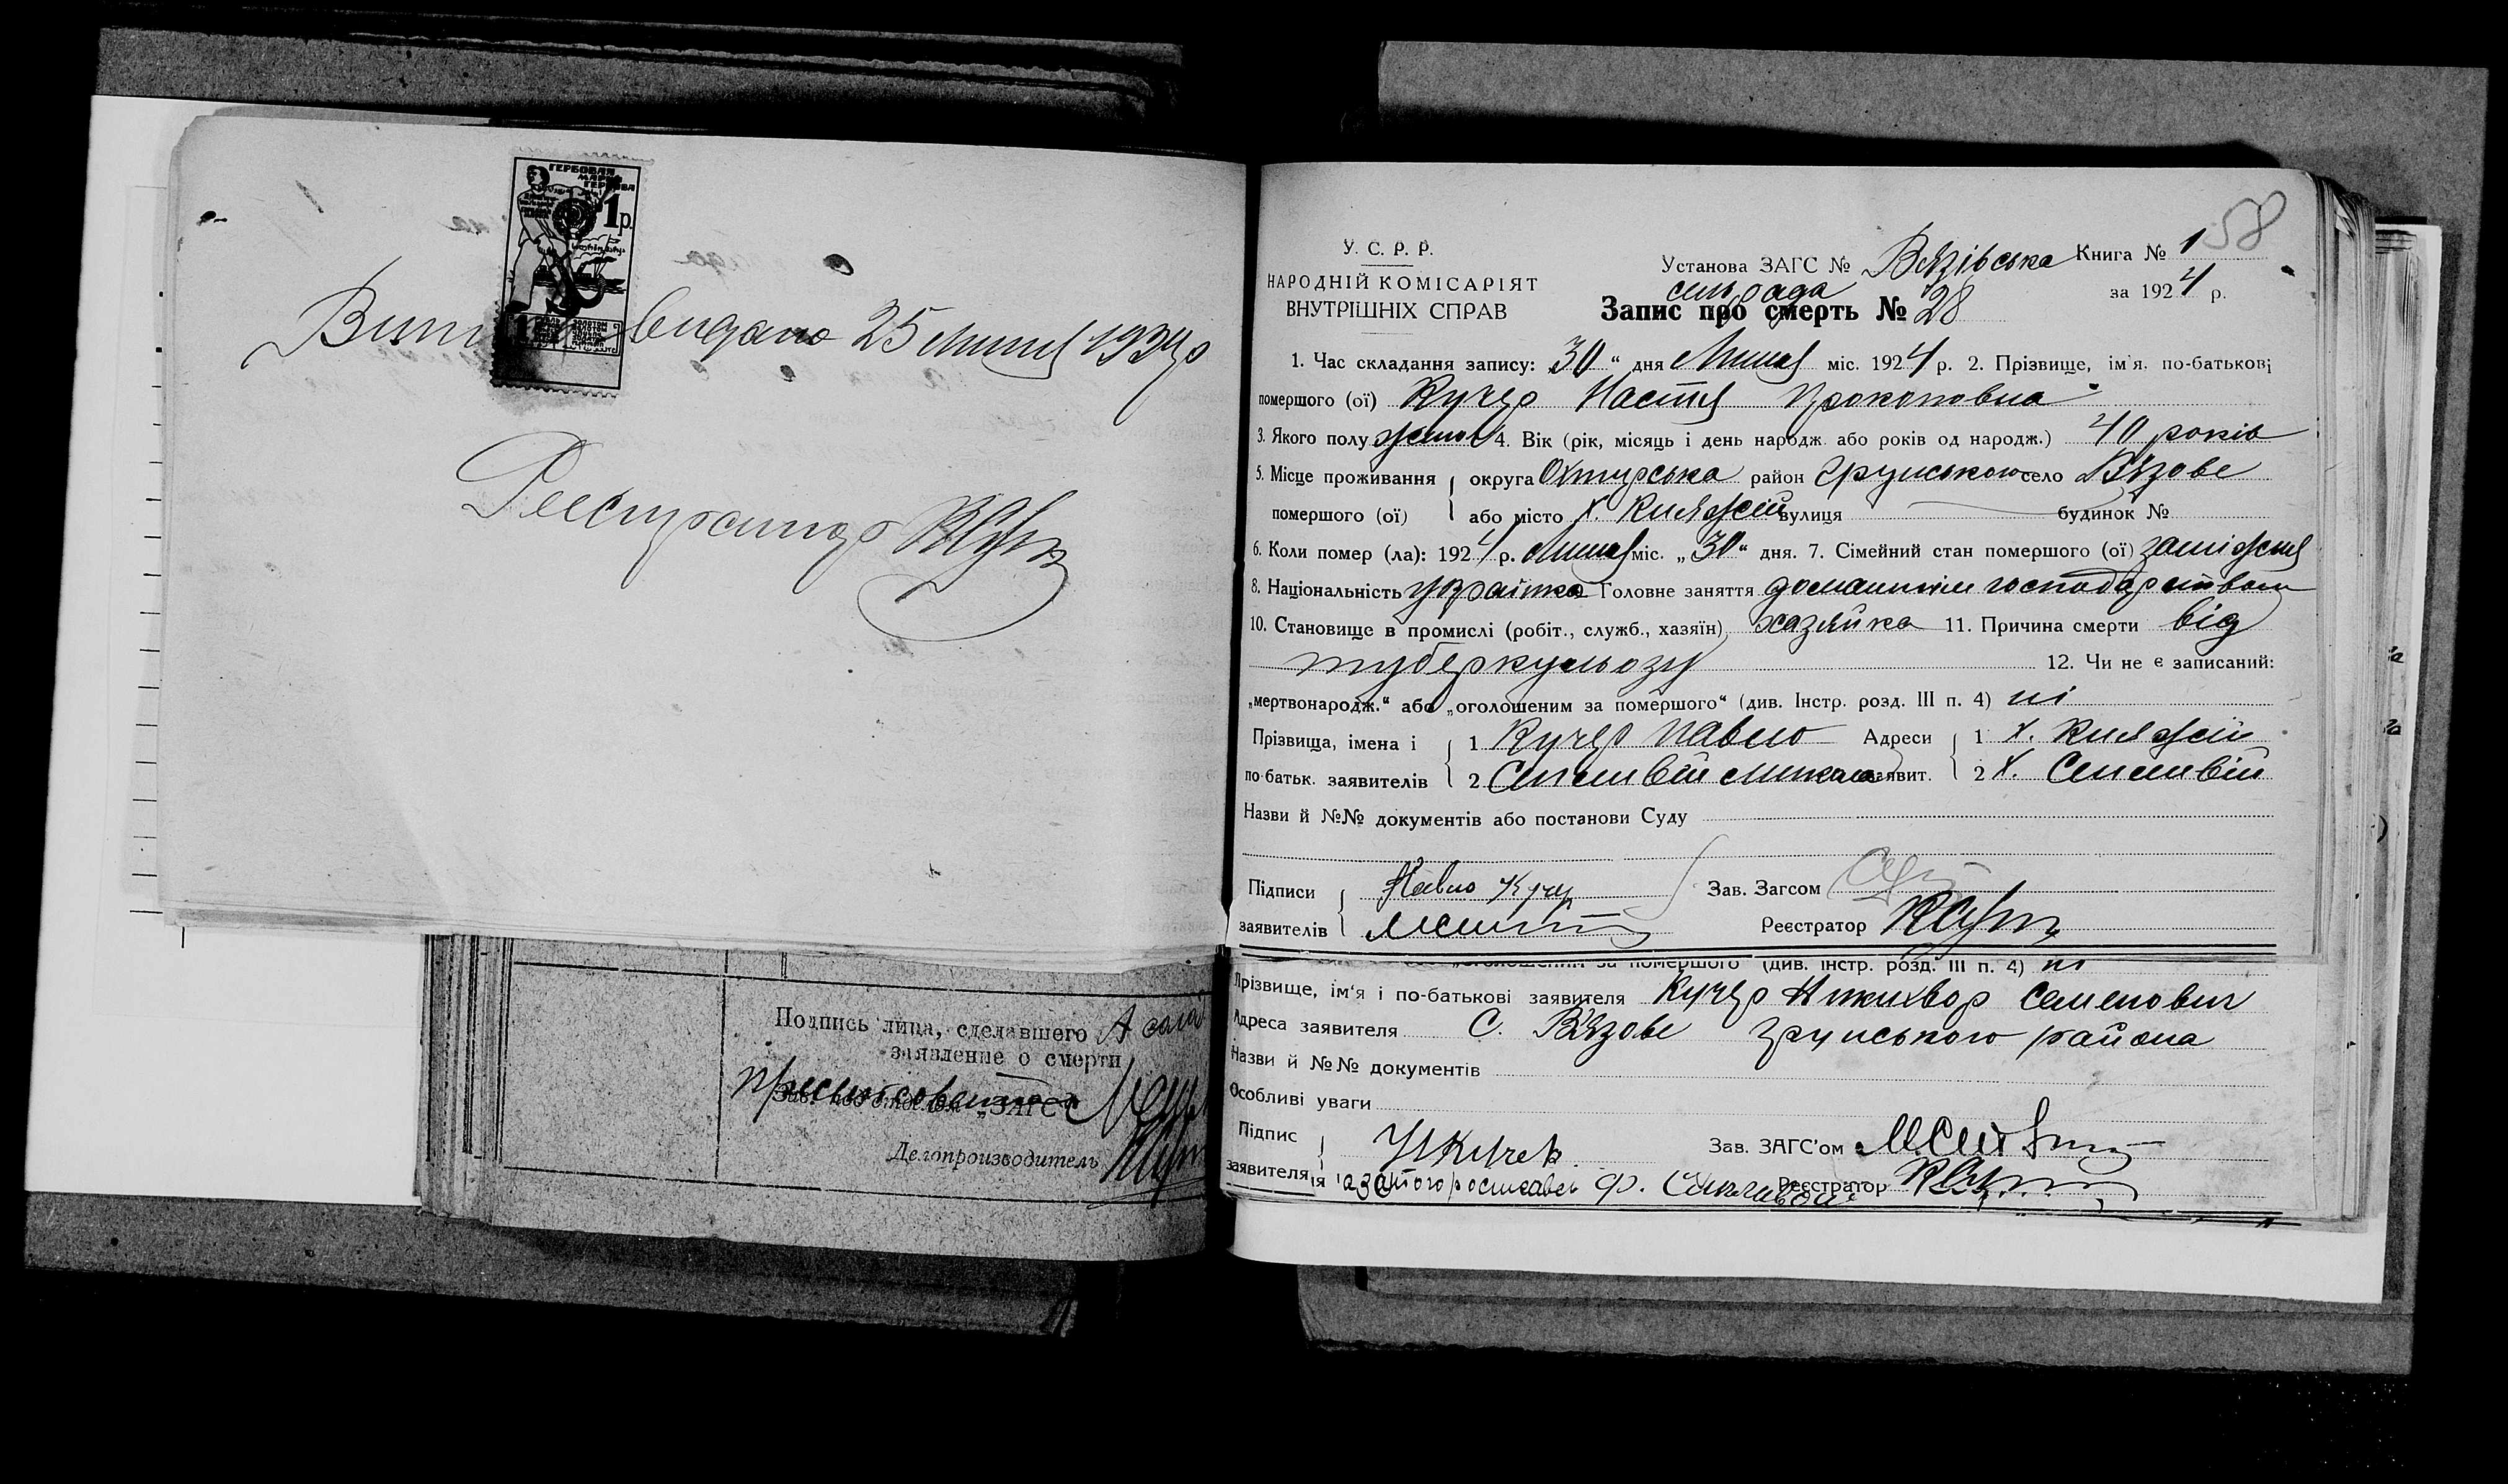 ГЕРБОВАЯ
МАРКА
ГЕРБОВА
1 р.
видано 25 Липня 1934 р
Реєстратор
58
У. С. Р. Р.
НАРОДНІЙ КОМІСАРІЯТ
ВНУТРІШНІХ СПРАВ
Установа ЗАГС № Вязівська Книга № 1
сельрада за 1924 р.
Запис про смерть № 28
1. Час складання запису: „30“ дня Липня міс. 1924 р. 2. Прізвище, ім'я, по-батькові
помершого (ої) Кучер Настя Прокоповна
3. Якого полу жіноч 4. Вік (рік, місяць і день народж. або років од народж.) 40 років
5. Місце проживання округа Охтирська район Грунського село Вязове
помершого (ої) або місто х. Княжий вулиця будинок №
6. Коли помер (ла): 1924 р. Липня міс. „30“ дня. 7. Сімейний стан помершого (ої) заміжня
8. Національність українка Головне заняття домашнім господарством
10. Становище в промислі (робіт., служб., хазяїн) хазяйка 11. Причина смерти від
туберкульозу 12. Чи не є записаний:
„мертвонародж.“ або „оголошеним за помершого“ (див. Інстр. розд. III п. 4) ні
Прізвища, імена і 1 Кучер Павло Адреси 1 х. Княжий
по-батьк. заявителів 2 заявит. 2 х.
Назви й №№ документів або постанови Суду
Підписи Павло Кучер Зав. Загсом
заявителів Реєстратор
„оголошеним за помершого“ (див. Інстр. розд. III п. 4) ні
Прізвище, ім'я і по-батькові заявителя Кучер Никихвор Семенович
Адреса заявителя С. Вязове Грунського района
Назви й №№ документів
Особливі уваги
Підпис Н Кучер Зав. ЗАГС'ом
заявителя Реєстратор
Подпись лица, сделавшего
заявление о смерти
„ЗАГС“
Делопроизводитель